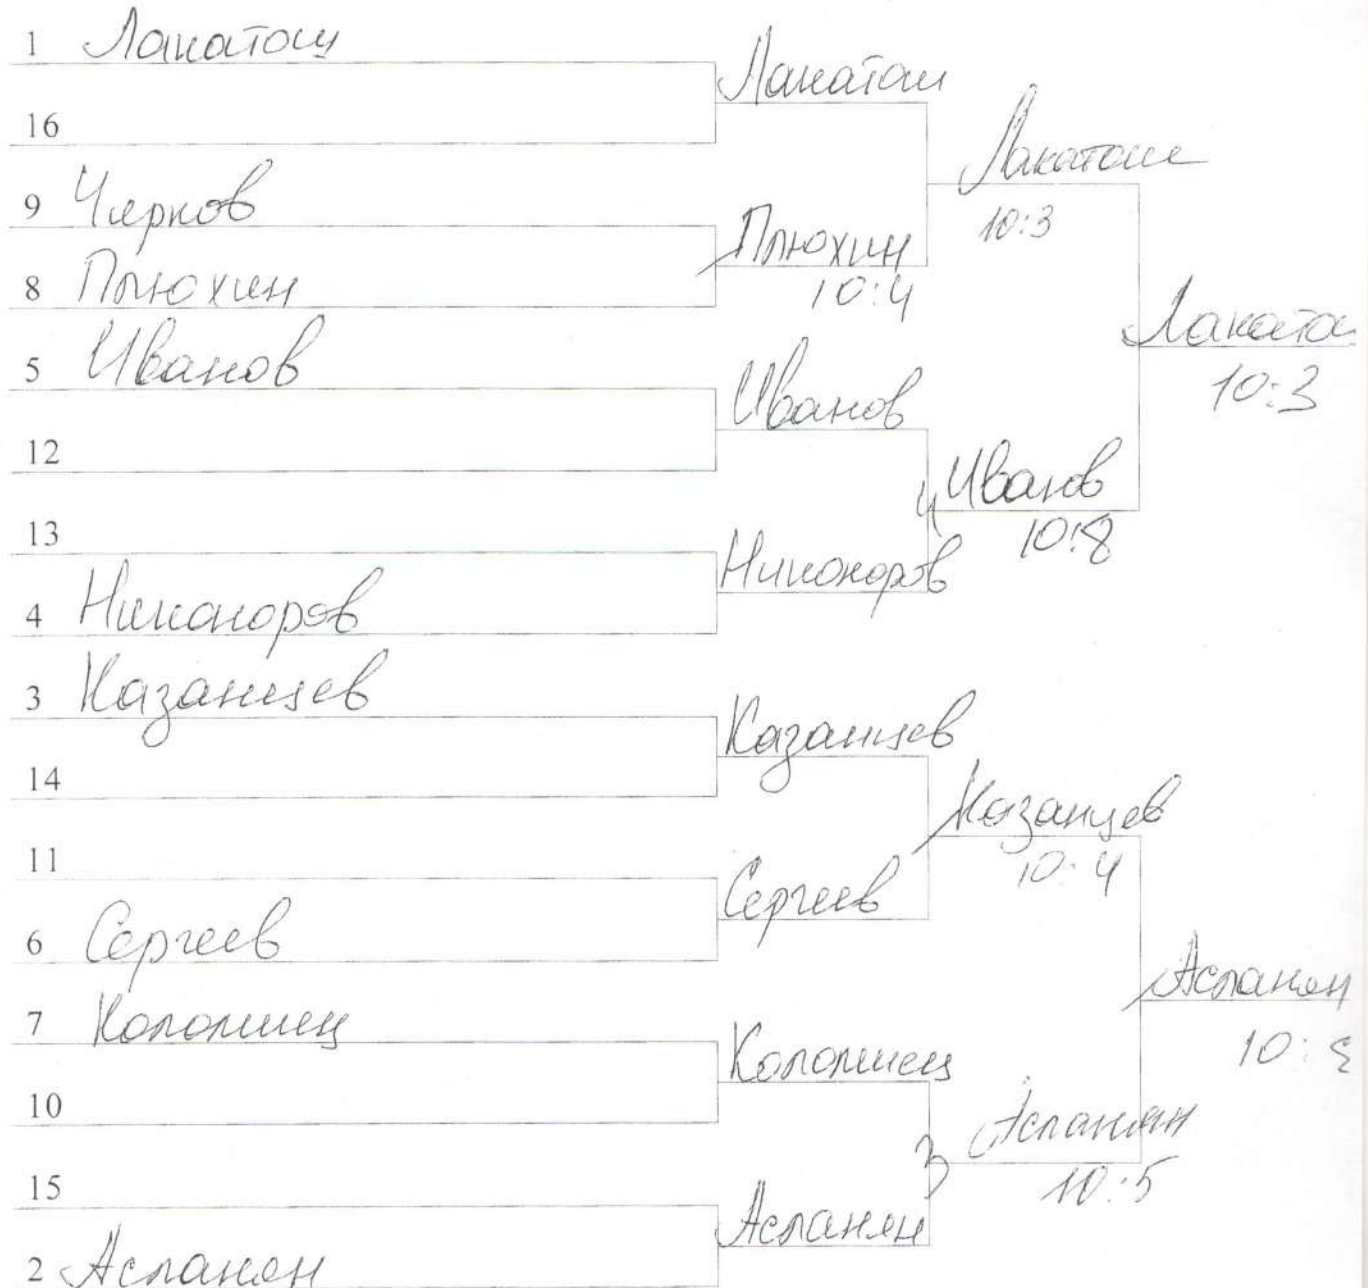 1 Лакатош
16
9 Чирков
8 Плюхин
5 Иванов
12
13
4 Никоноров
3 Казанцев
14
11
6 Сергеев
7 Коломиец
10
15
2 Асланян
Лакатош
Плюхин
10:4
Иванов
Никоноров
Казанцев
Сергеев
Коломиец
Асланян
Лакатош
10:3
Иванов
10:8
Казанцев
10:4
Асланян
10:5
Лакато
10:3
Асланян
10: